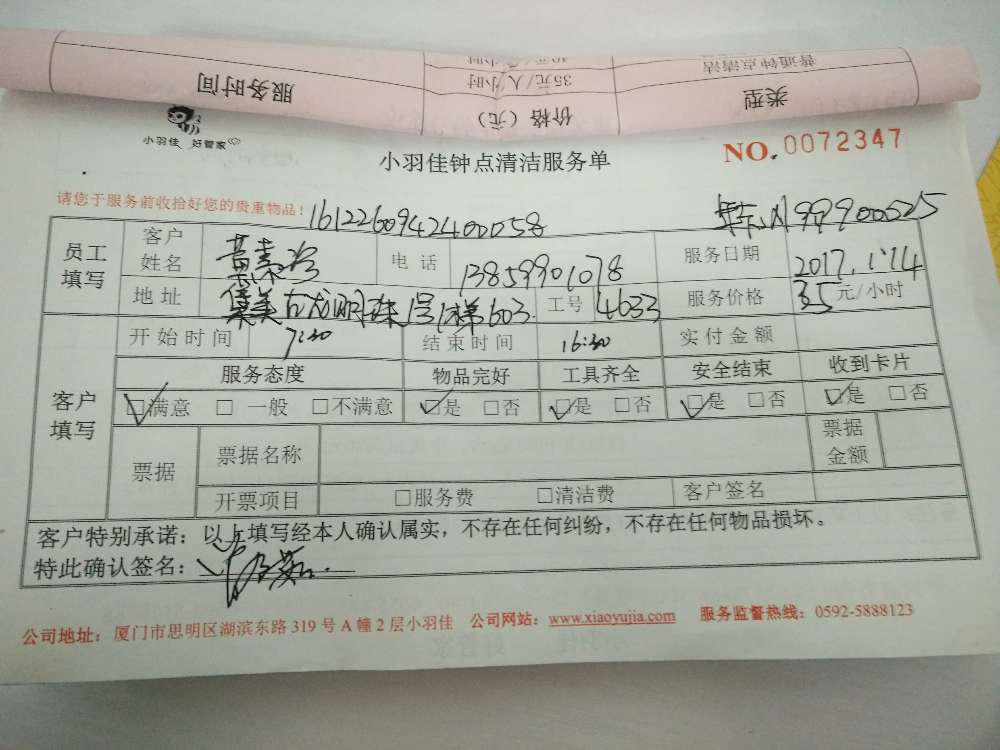 服务时间 价格（元） 类型
35元/人/小时 普通钟点清洁
小羽佳 好管家
小羽佳钟点清洁服务单 NO.0072347
请您于服务前收拾好您的贵重物品！ 1612260942400058 99900525
员工填写 客户姓名 电话 13859901078 服务日期 2017.1.14
地址 集美古龙明珠1号1梯603. 工号 4633 服务价格 35元/小时
客户填写 开始时间 7:30 结束时间 16:30 实付金额
服务态度 物品完好 工具齐全 安全结束 收到卡片
☑满意 □ 一般 □不满意 ☑是 □否 ☑是 □否 ☑是 □否 ☑是 □否
票据 票据名称 票据金额
开票项目 □服务费 □清洁费 客户签名
客户特别承诺：以上填写经本人确认属实，不存在任何纠纷，不存在任何物品损坏。
特此确认签名：
公司地址：厦门市思明区湖滨东路319号A幢2层小羽佳 公司网站：www.xiaoyujia.com 服务监督热线：0592-5888123